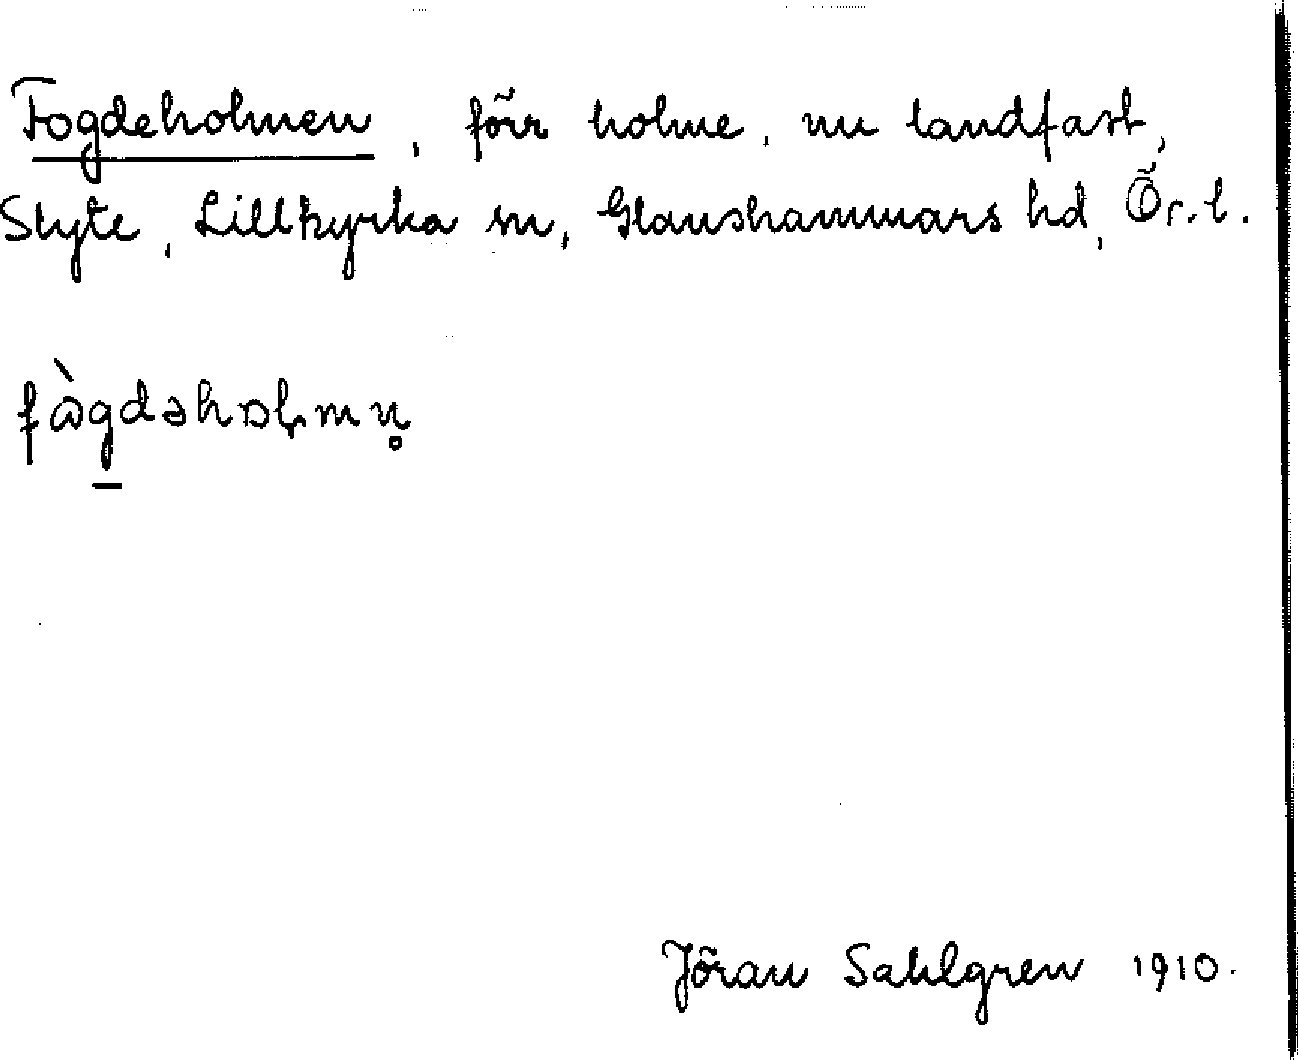 Fogdeholmen, förr holme, nu landfast,
Slyte, Lillkyrka sn, Glanshammars hd, Ör. l.
fàgdəhɒḷmn̥
Jöran Sahlgren 1910.